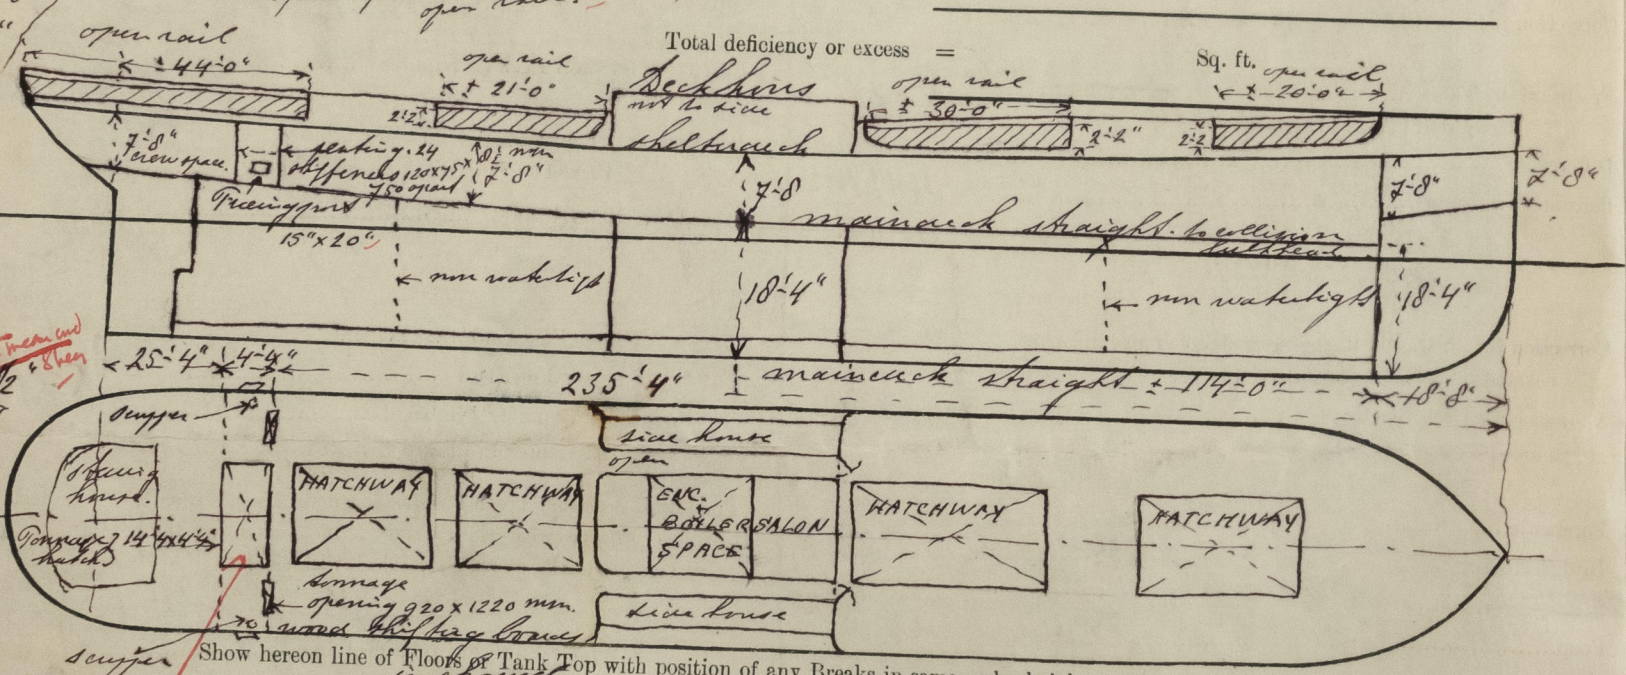 open rail
Total deficiency or excess =
Sq. ft.
open rail
± 44'-0"
open rail
± 21'-0"
Deckhous
not to side
shelterdeck
open rail
± 30'-0"
open rail
± 20'-0"
2'-2"
2'-2"
2'-2
7'-8"
crew space
plating .24
stiffeners 120x75x8½ mm
750 apart
7'-8"
Freeing port
15" x 20"
7'-8
maindeck straight to collision
bulkhead
7'-8"
7'-8"
non watertight
18'-4"
non watertight
18'-4"
mean and
Sheer
25'-4"
4'-4"
235'-4"
maindeck straight ± 114'-0"
18'-8"
scupper
side house
open
steering
house.
HATCHWAY
HATCHWAY
ENG.
BOILER
SPACE
SALON
HATCHWAY
HATCHWAY
Tonnage 14'4x4'4"
hatch
tonnage
opening 920 x 1220 mm.
wood shifting boards
side house
scupper
Show hereon line of Floors or Tank Top with position of any Breaks in